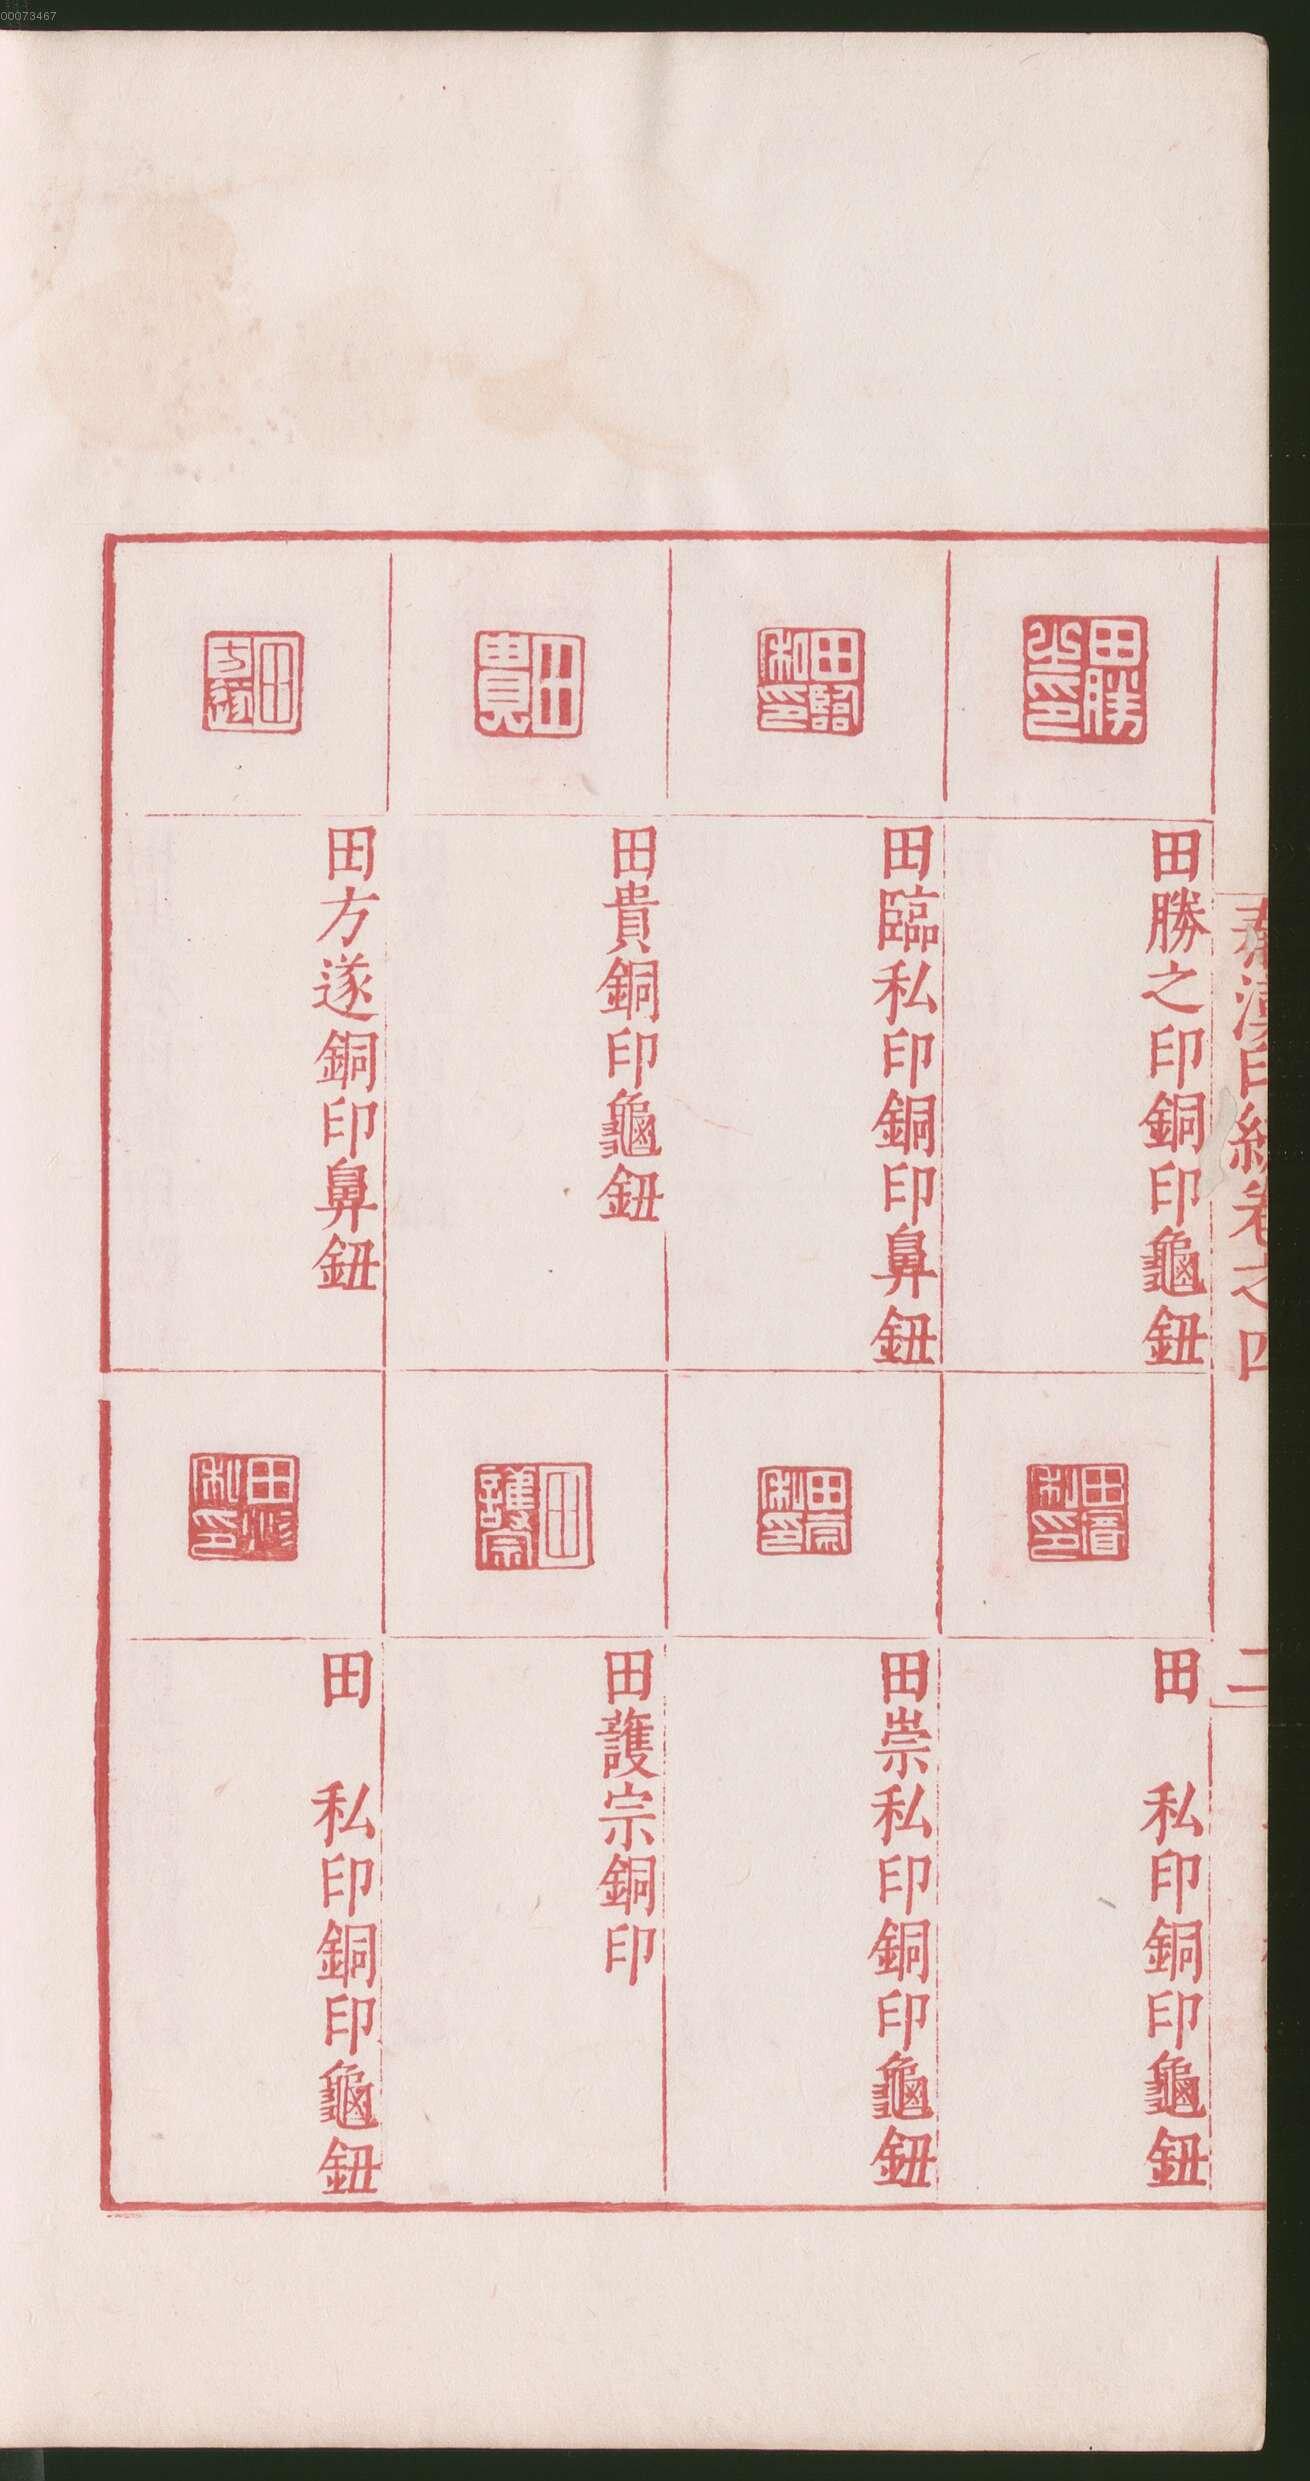 00073467
秦漢印統卷之四
二
田勝之印
田勝之印銅印龜鈕
田臨私印
田臨私印銅印鼻鈕
田貴
田貴銅印龜鈕
田方遂
田方遂銅印鼻鈕
田 私印
田 私印銅印龜鈕
田崇私印
田崇私印銅印龜鈕
田護宗
田護宗銅印
田 私印
田 私印銅印龜鈕